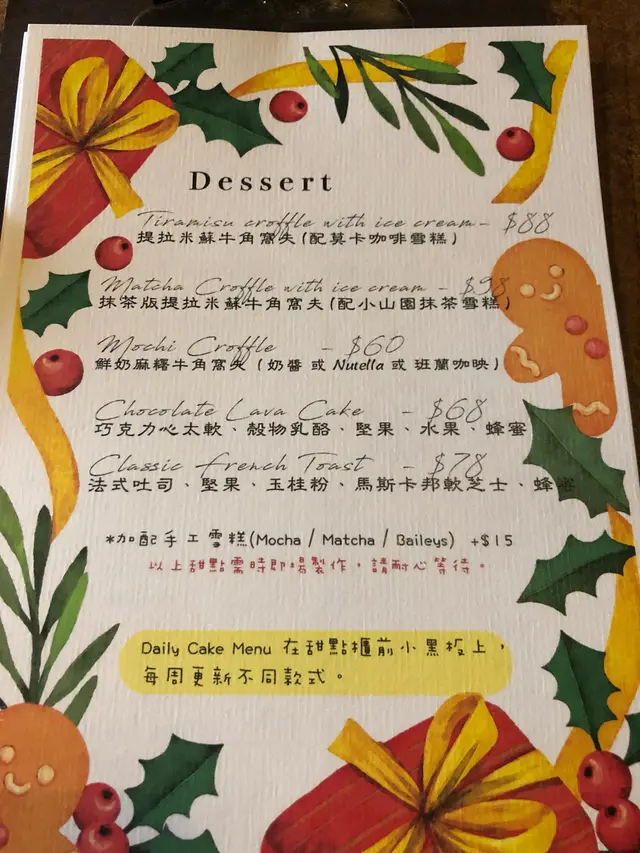 Dessert
Tiramisu croffle with ice cream - $88
提拉米蘇牛角窩夫(配莫卡咖啡雪糕)
Matcha Croffle with ice cream - $98
抹茶版提拉米蘇牛角窩夫(配小山園抹茶雪糕)
Mochi Croffle - $60
鮮奶麻糬牛角窩夫 (奶醬 或 Nutella 或 班蘭咖央)
Chocolate Lava Cake - $68
巧克力心太軟、穀物乳酪、堅果、水果、蜂蜜
Classic French Toast - $78
法式吐司、堅果、玉桂粉、馬斯卡邦軟芝士、蜂蜜
*加配手工雪糕(Mocha / Matcha / Baileys) +$15
以上甜點需時即場製作,請耐心等待。
Daily Cake Menu 在甜點櫃前小黑板上,
每周更新不同款式。